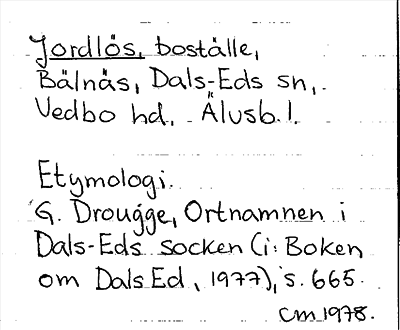 Jordlös, boställe,
Bälnäs, Dals-Eds sn,
Vedbo hd. Älvsb. l.
Etymologi.
G. Drougge, Ortnamnen i
Dals-Eds socken (i: Boken
om Dals Ed, 1977), s. 665.
CM 1978.